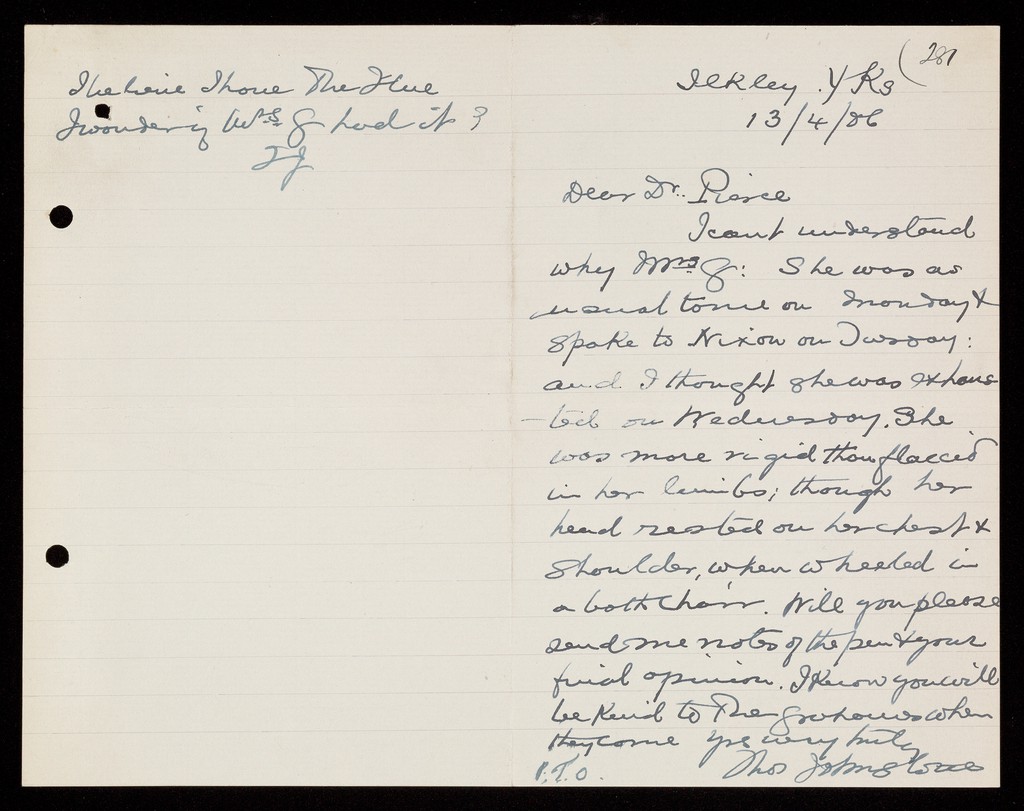 281
Ilkley. Yks
13/4/06
Dear Dr. Pierce
I cant understand
why Mrs G: She was as
usual to me on Monday &
spoke to Nixon on Tuesday:
and I thought she was exhaus
-ted on Wednesday. She
was more rigid than flaccid
in her limbs; though her
head rested on her chest &
shoulder, when wheeled in
a bath chair. Will you please
send me notes of the & your
final opinion. I know you will
be kind to The when
they come yrs very truly
P.T.O. Thos Johnstone
I have The Flue
I wonder if Mrs G had it?
TJ